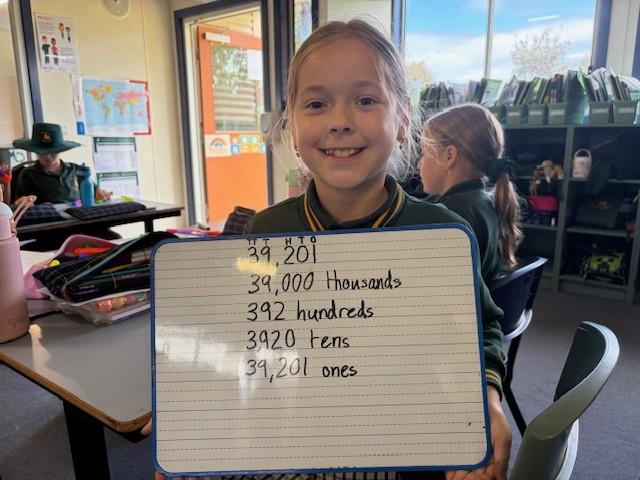 TT T H T O
39,201
39,000 thousands
392 hundreds
3920 tens
39,201 ones